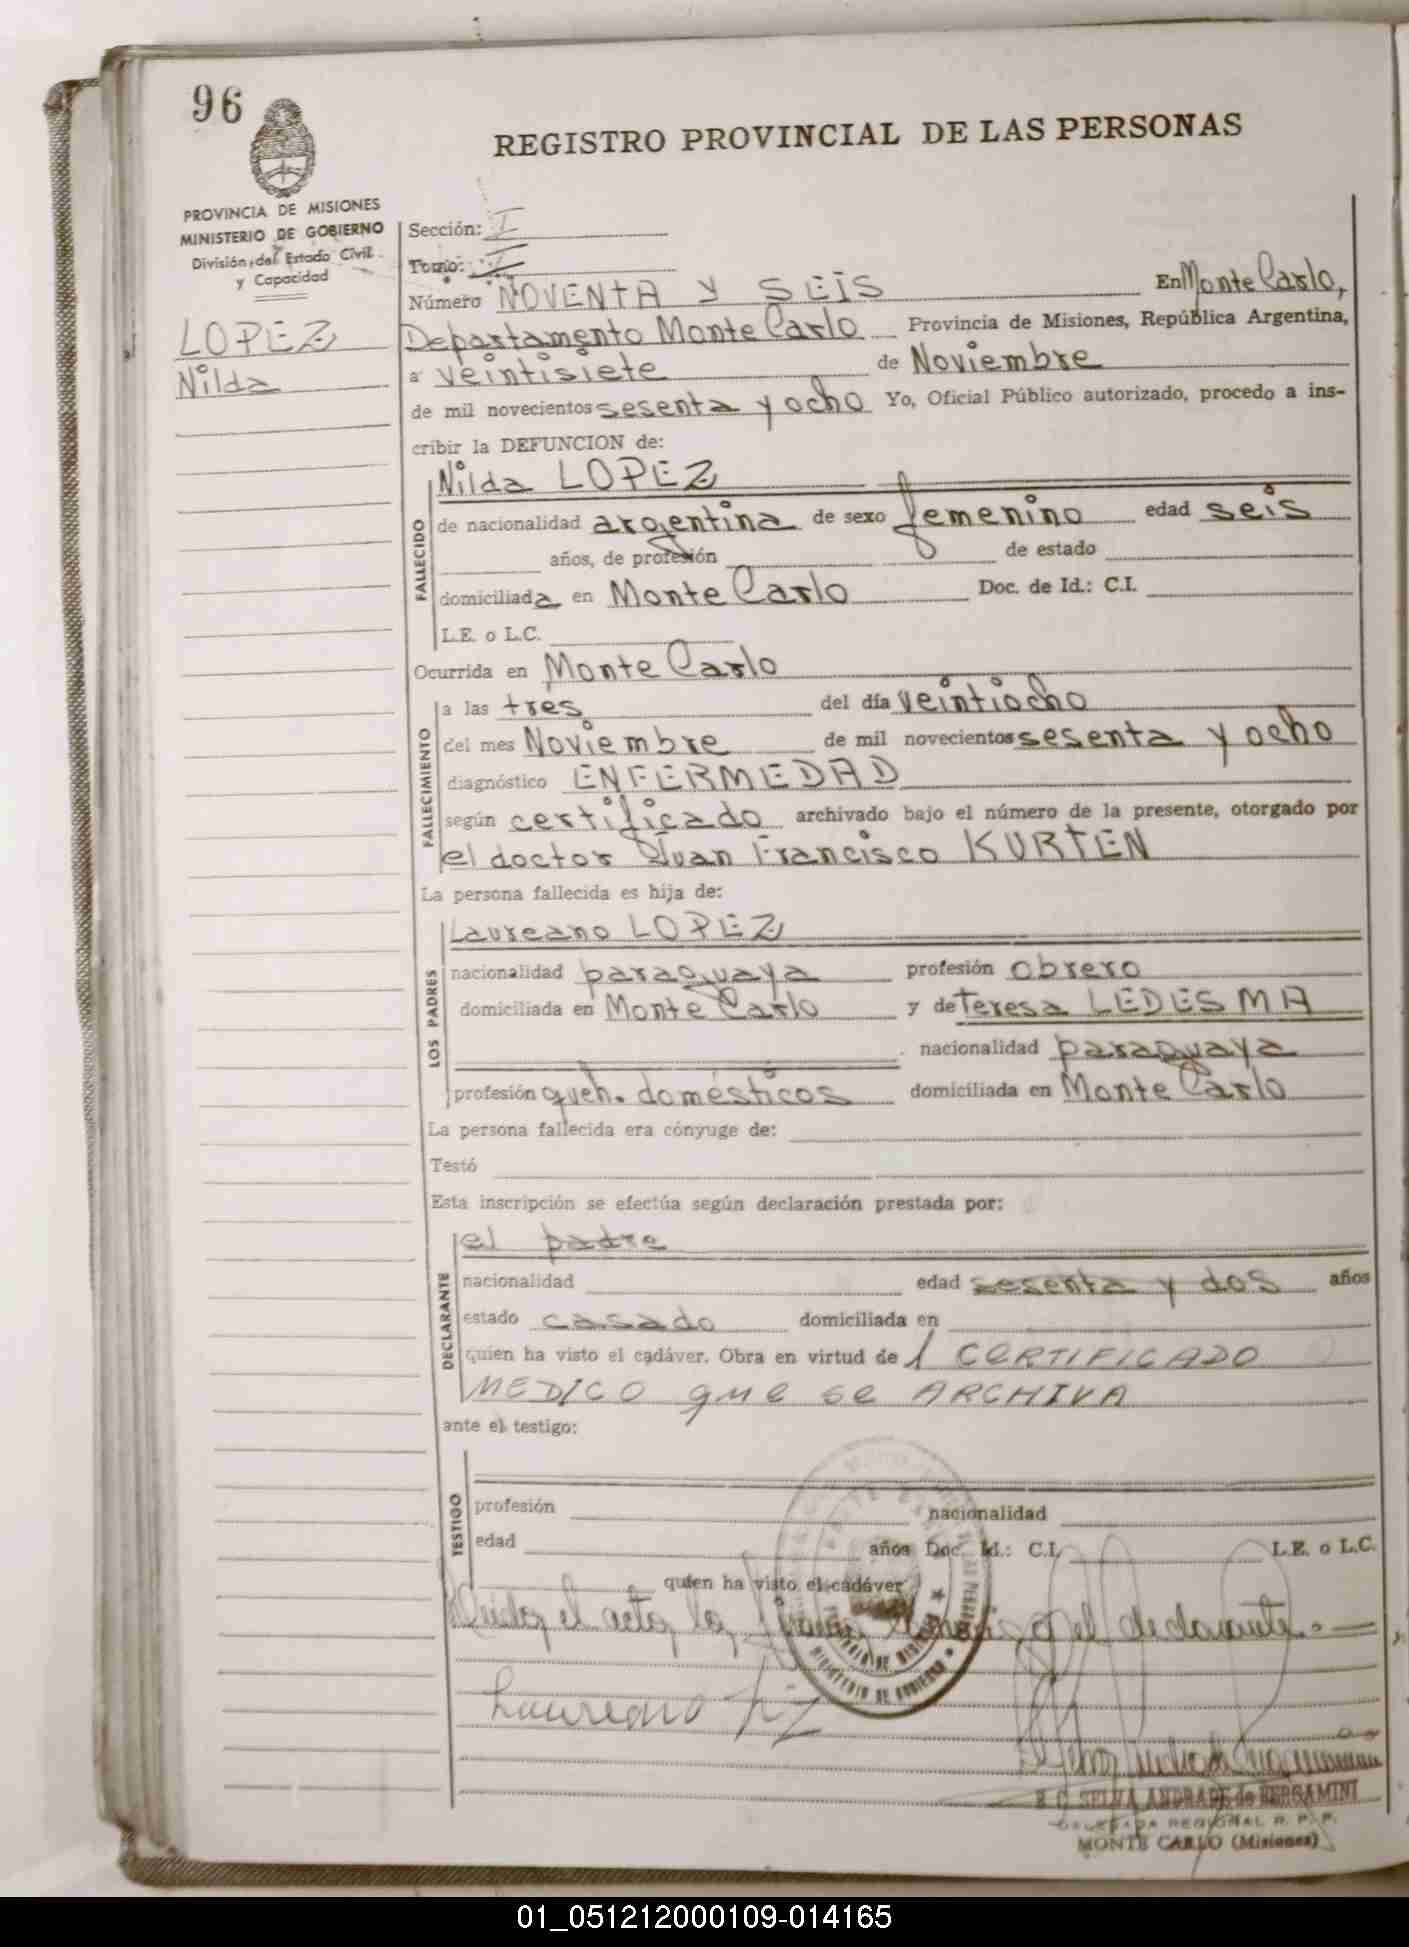 96
REGISTRO PROVINCIAL DE LAS PERSONAS
PROVINCIA DE MISIONES
MINISTERIO DE GOBIERNO
División del Estado Civil
y Capacidad
LOPEZ
Nilda
Sección: I
Tomo: I
Número NOVENTA Y SEIS En Monte Carlo,
Departamento Monte Carlo Provincia de Misiones, República Argentina,
a veintisiete de Noviembre
de mil novecientos sesenta y ocho Yo, Oficial Público autorizado, procedo a ins-
cribir la DEFUNCION de:
Nilda LOPEZ
FALLECIDO
de nacionalidad argentina de sexo femenino edad seis
años, de profesión de estado
domiciliada en Monte Carlo Doc. de Id.: C.I.
L.E. o L.C.
Ocurrida en Monte Carlo
FALLECIMIENTO
a las tres del día veintiocho
del mes Noviembre de mil novecientos sesenta y ocho
diagnóstico ENFERMEDAD
según certificado archivado bajo el número de la presente, otorgado por
el doctor Juan Francisco KURTEN
La persona fallecida es hija de:
LOS PADRES
Laureano LOPEZ
nacionalidad paraguaya profesión obrero
domiciliada en Monte Carlo y de Teresa LEDESMA
nacionalidad paraguaya
profesión queh. domésticos domiciliada en Monte Carlo
La persona fallecida era cónyuge de:
Testó
Esta inscripción se efectúa según declaración prestada por:
DECLARANTE
el padre
nacionalidad edad sesenta y dos años
estado casado domiciliada en
quien ha visto el cadáver. Obra en virtud de 1 CERTIFICADO
MEDICO que se ARCHIVA
ante el testigo:
TESTIGO
profesión nacionalidad
edad años Doc. Id.: C.I. L.E. o L.C.
quien ha visto el cadáver
el acto, la y el declarante.
Laureano
MINISTERIO DE GOBIERNO
SELVA ANDRADE de BERGAMINI
DELEGADA REGIONAL R. P. P.
MONTE CARLO (Misiones)
01_051212000109-014165